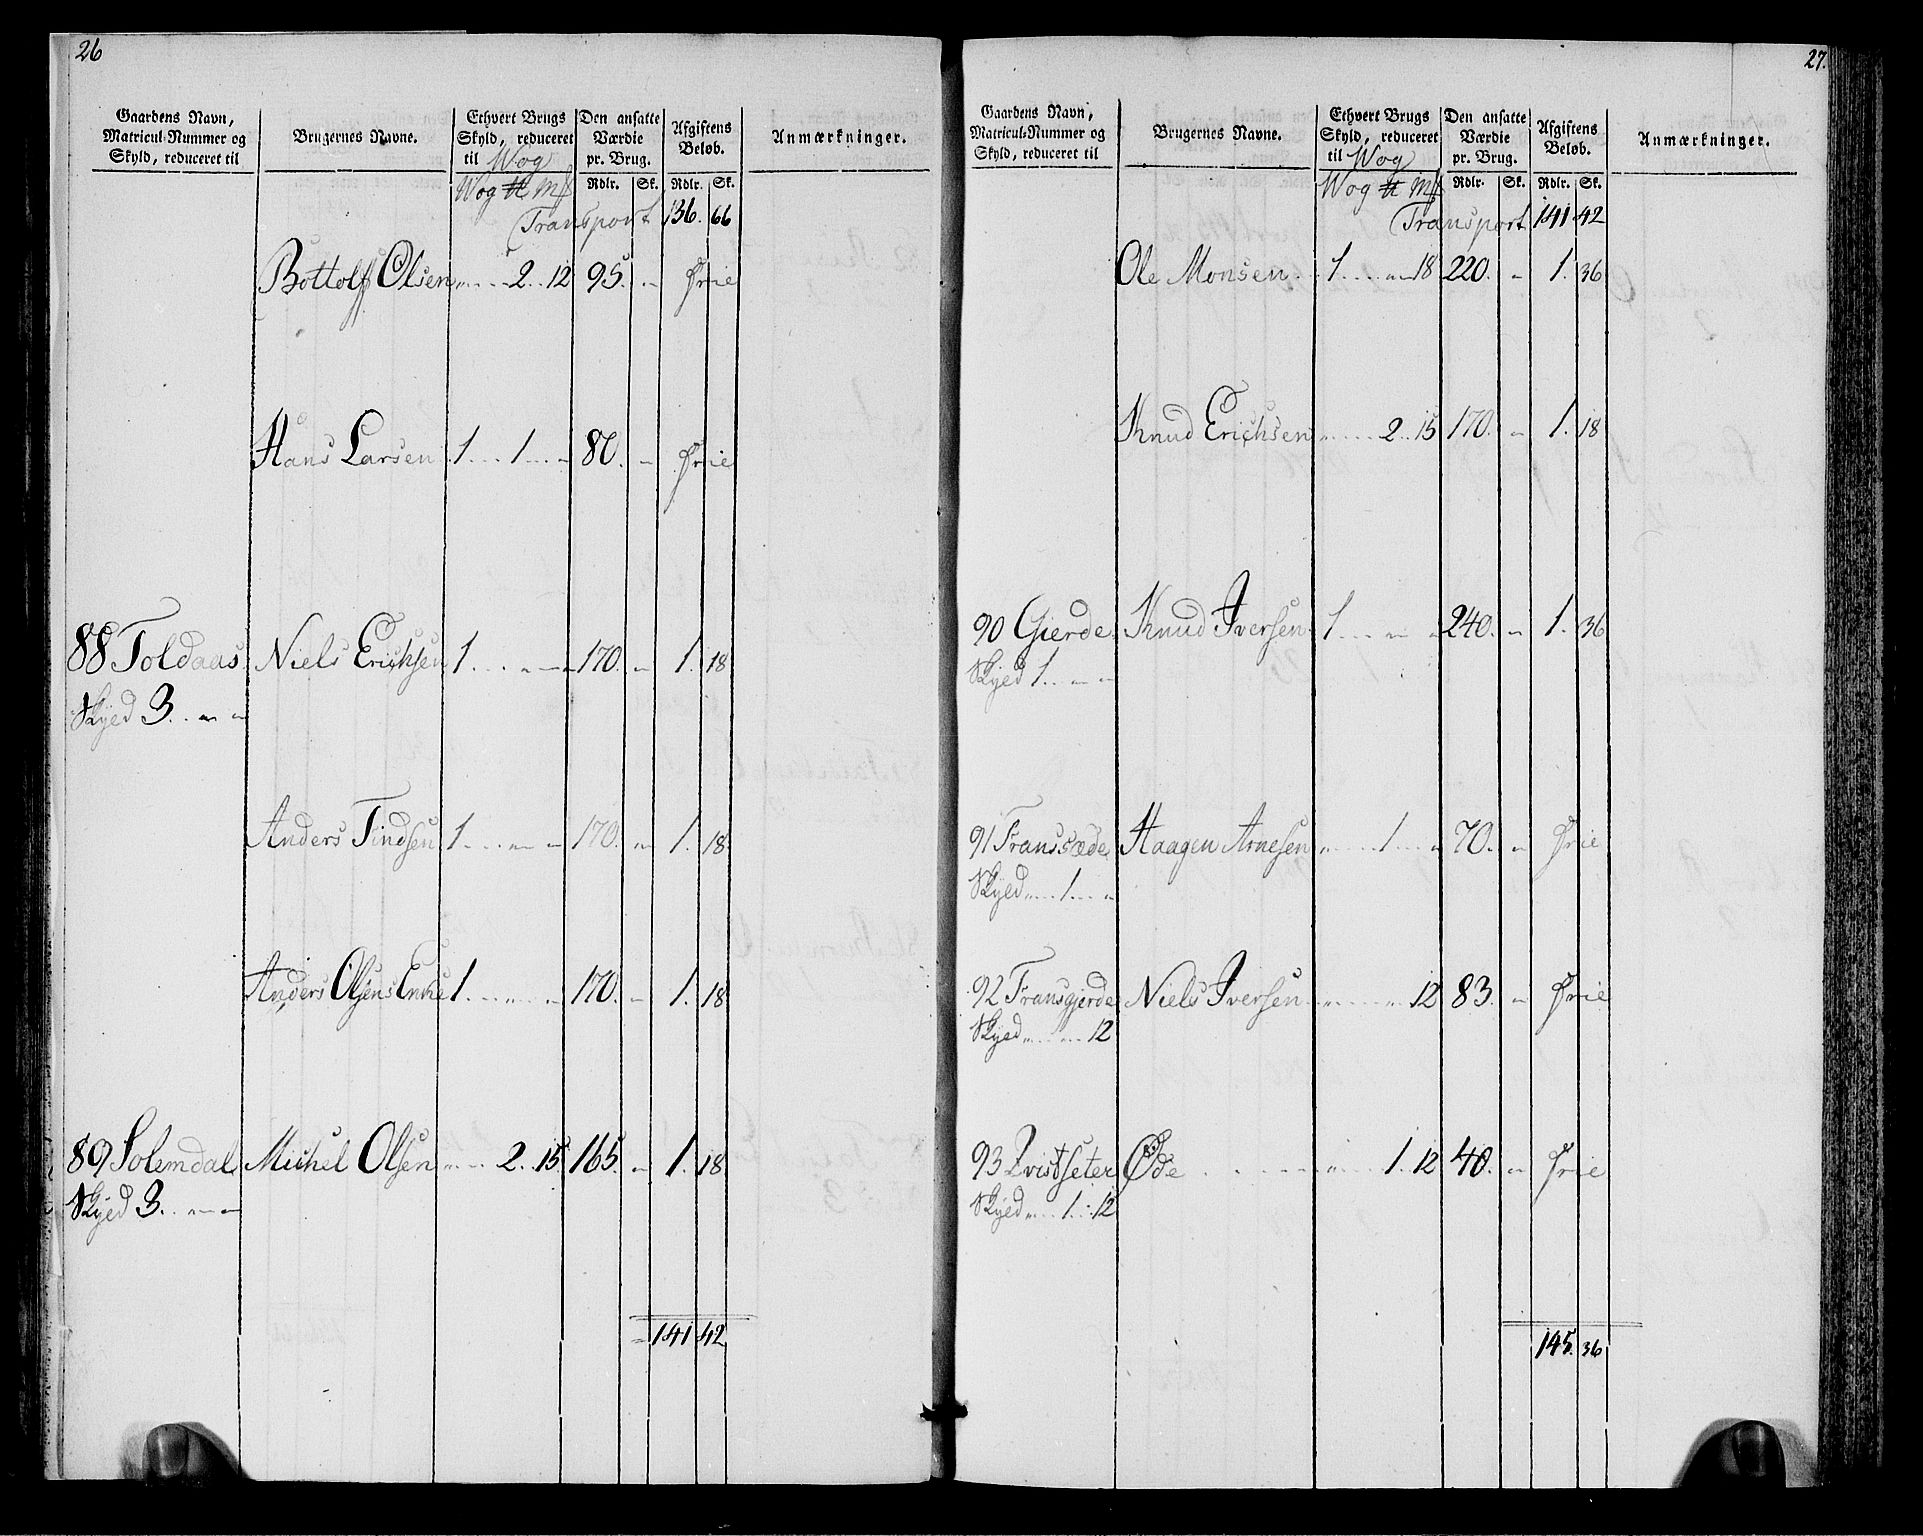 26
Gaardens Navn, Matricul-Nummer og Skyld, reduceret til
Brugernes Navne.
Ethvert Brugs Skyld, reduceret til Wog
Den ansatte Værdie pr. Brug.
Afgiftens Beløb.
Anmærkninger.
Wog ℔ Mk Rdlr. Sk. Rdlr. Sk.
Transport 136. 66
Bottolf Olsen 2 12 95. Frie
Hans Larsen 1 1 80. Frie
88 Toldaas Niels Erichsen 1 170. 1. 18
Skyed 3.
Anders Findsen 1 170. 1. 18
Anders Olsens Enke 1 170. 1. 18
89 Solemdal Michel Olsen 2 15 165. 1. 18
Skyed 3.
141 42
27.
Gaardens Navn, Matricul-Nummer og Skyld, reduceret til
Brugernes Navne.
Ethvert Brugs Skyld, reduceret til Wog
Den ansatte Værdie pr. Brug.
Afgiftens Beløb.
Anmærkninger.
Wog ℔ Mk Rdlr. Sk. Rdlr. Sk.
Transport 141 42
Ole Monsen 1 18 220. 1. 36
Knud Erichsen 2 15 170. 1. 18
90 Gierde Knud Iversen 1 240. 1. 36
Skyed 1
91 Fransæde Haagen Arnesen 1 70. Frie
Skyed 1
92 Fransgjerde Niels Iversen 12 83. Frie
Skyed 12
93 Qvistseter Øde 1 12 40. Frie
Skyed 1 12
145. 36